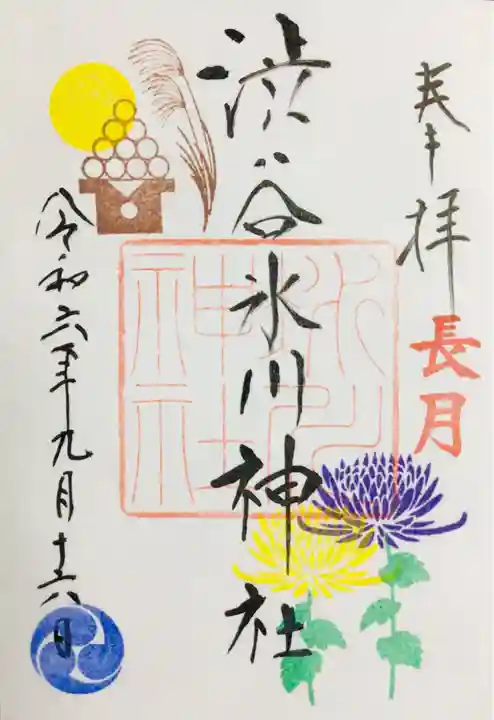 奉拝
長月
渋谷氷川神社
氷川神社
令和六年九月十六日